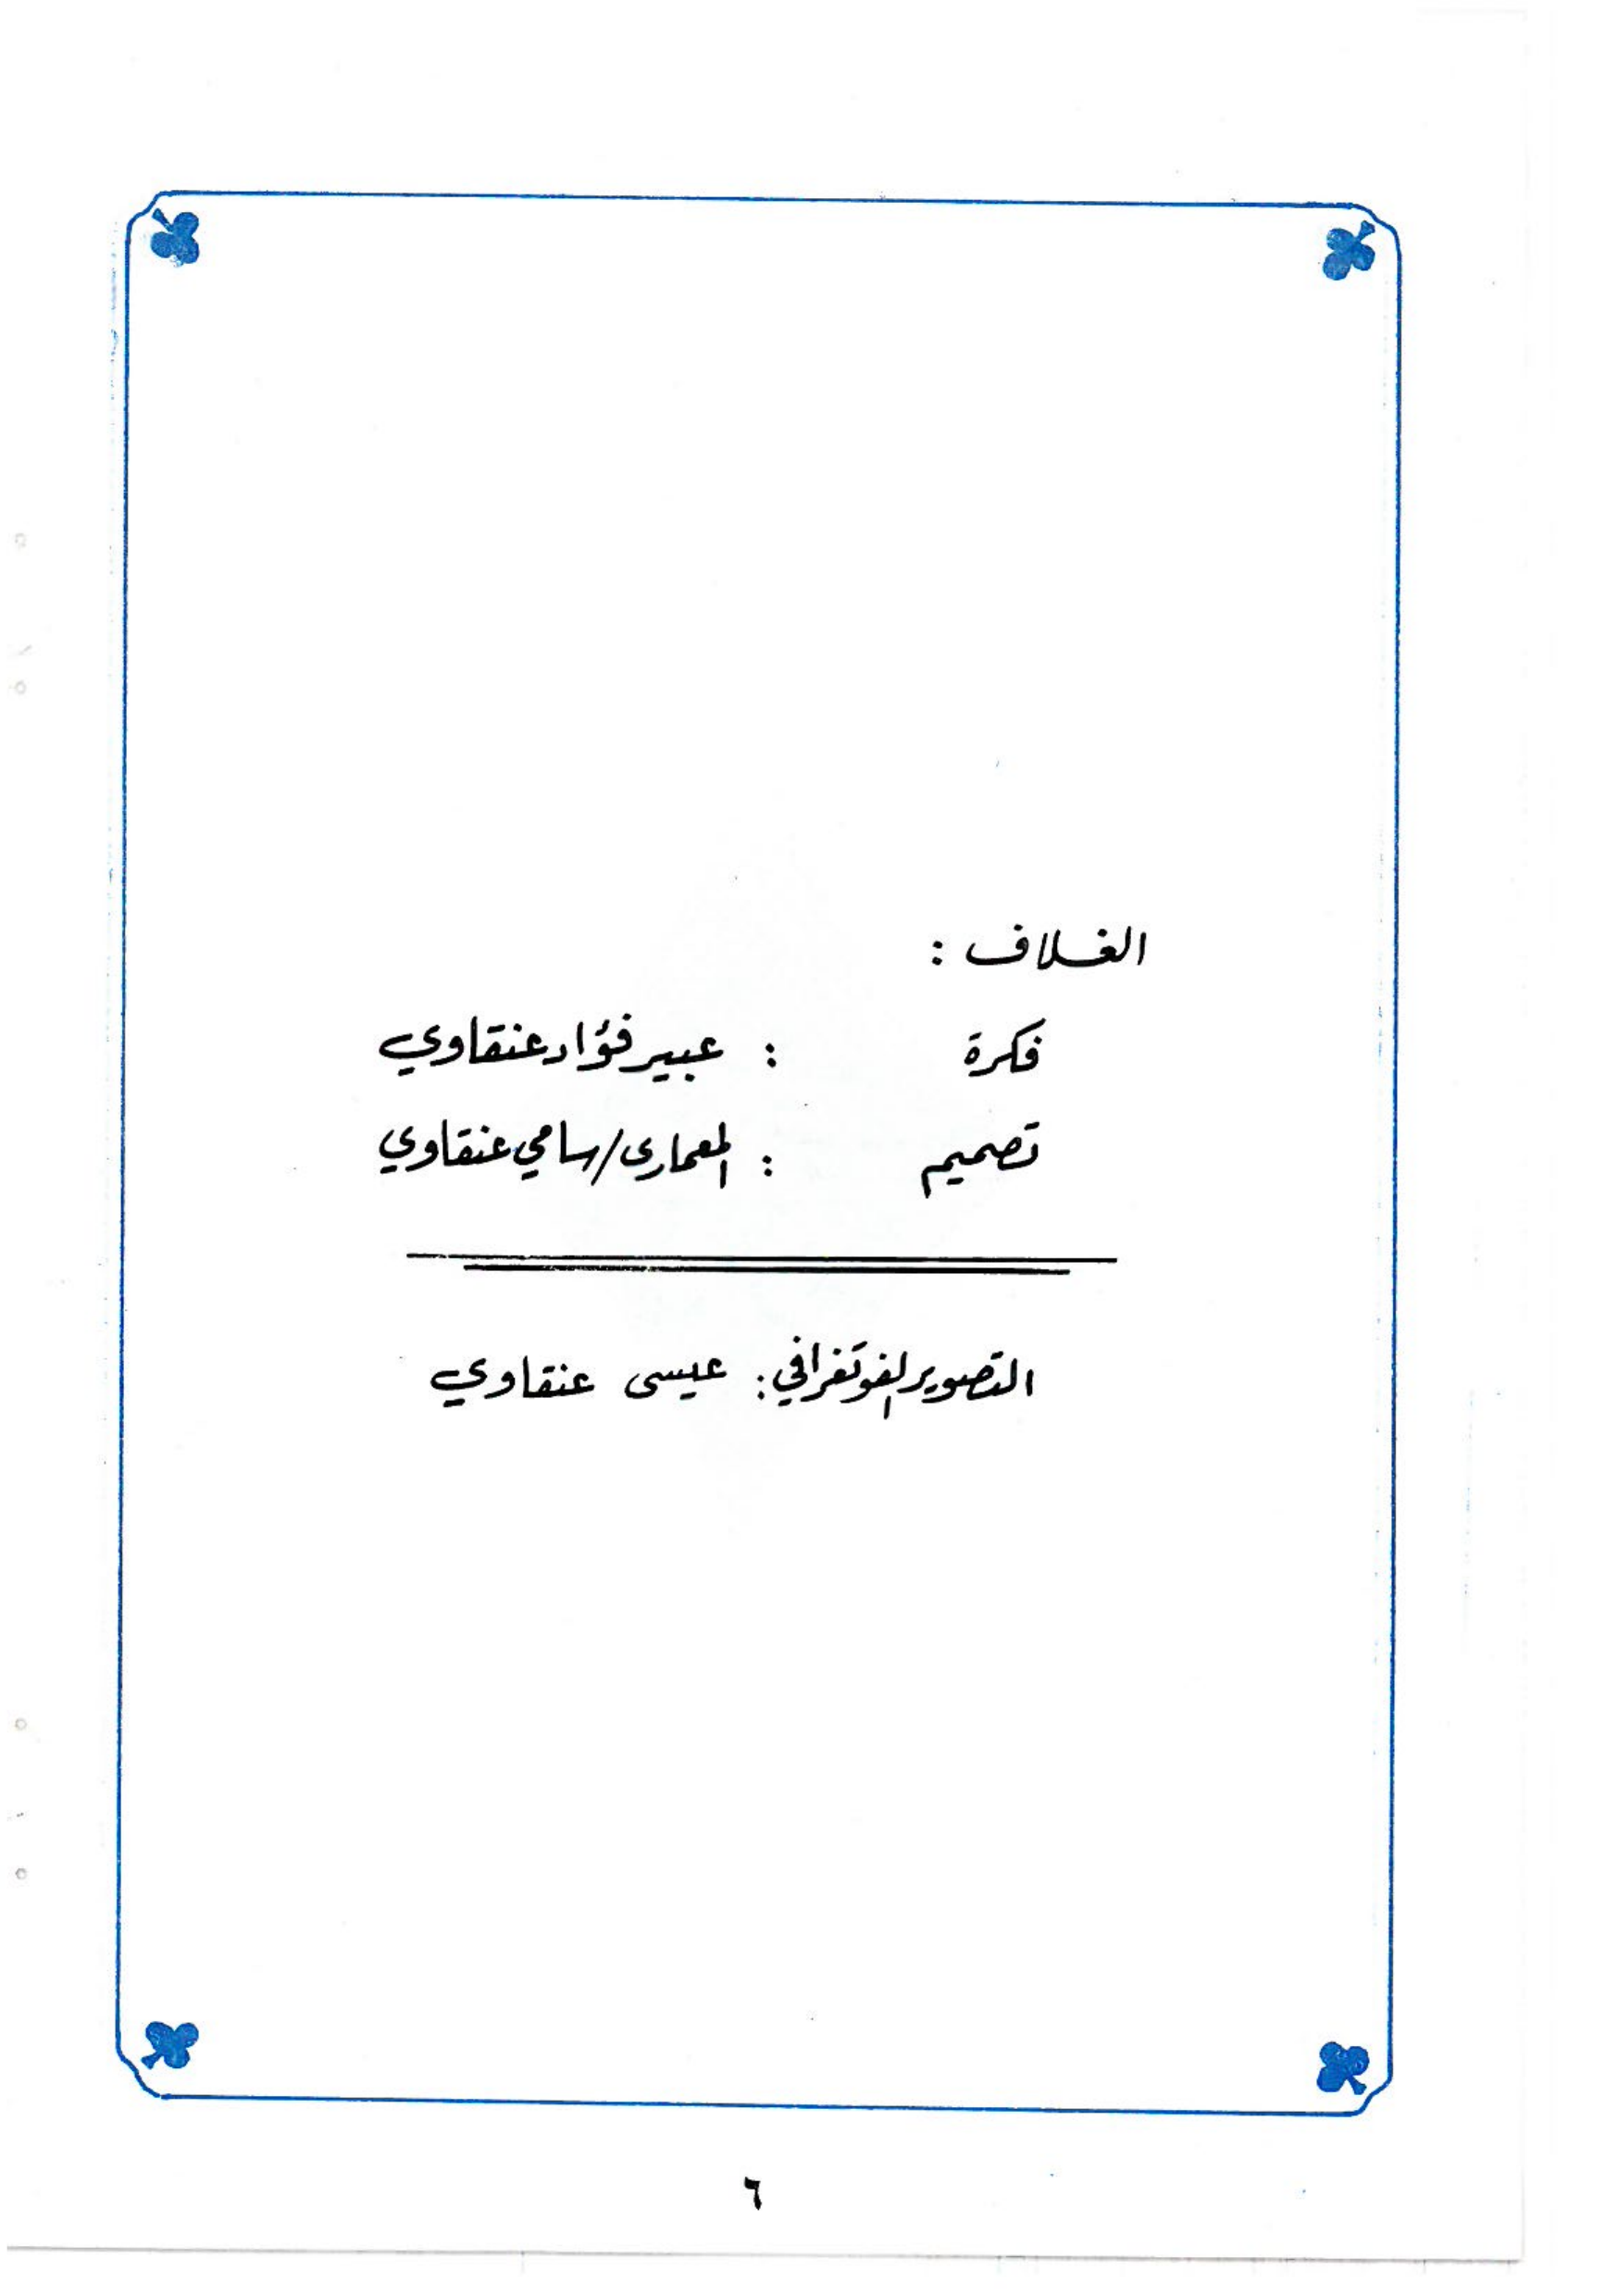 الغلاف :
فكرة : عبير فؤاد عنقاوي
تصميم : المعماري/سامي عنقاوي
التصوير الفوتغرافي : عيسى عنقاوي
٦